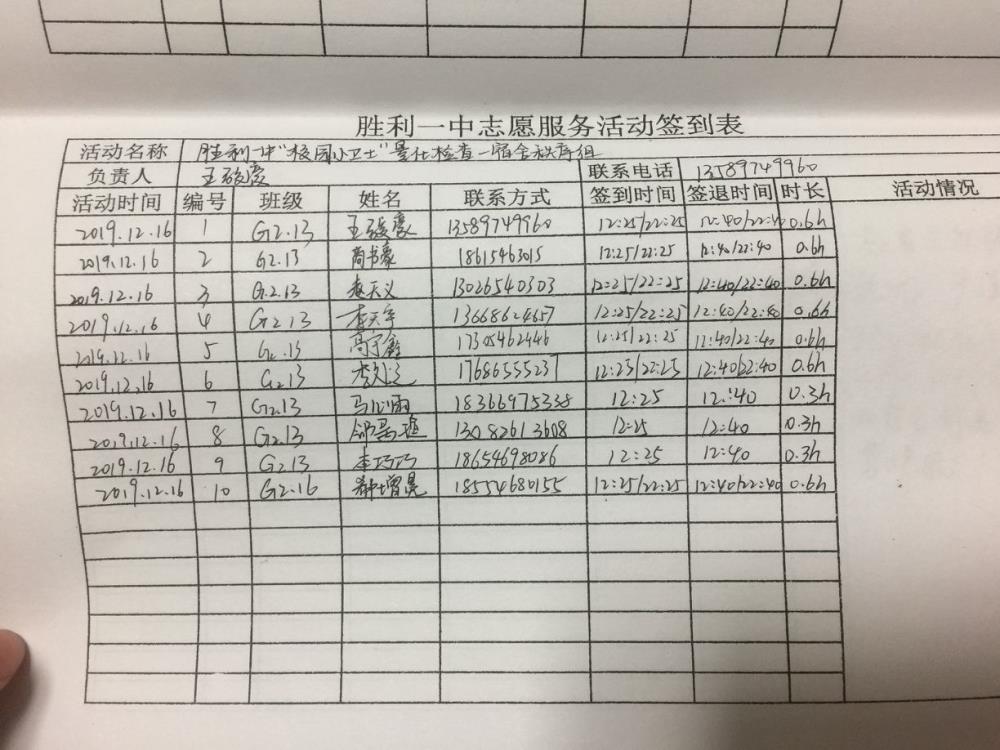 胜利一中志愿服务活动签到表
活动名称 胜利一中"校园小卫士"量化检查-宿舍秩序组
负责人 王 联系电话 13589749960
活动时间 编号 班级 姓名 联系方式 签到时间 签退时间 时长 活动情况
2019.12.16 1 G2.13 王 13589749960 12:25/22:25 12:40/22:40 0.6h
2019.12.16 2 G2.13 商书豪 18615463015 12:25/22:25 12:40/22:40 0.6h
2019.12.16 3 G.2.13 赵天义 13026540303 12:25/22:25 12:40/22:40 0.6h
2019.12.16 4 G2.13 13668624657 12:25/22:25 12:40/22:40 0.6h
2019.12.16 5 G2.13 高 17305462446 12:25/22:25 12:40/22:40 0.6h
2019.12.16 6 G2.13 17686555237 12:25/22:25 12:40/22:40 0.6h
2019.12.16 7 G2.13 马心雨 18366975338 12:25 12:40 0.3h
2019.12.16 8 G2.13 13082613608 12:25 12:40 0.3h
2019.12.16 9 G2.13 李巧巧 18654698086 12:25 12:40 0.3h
2019.12.16 10 G2.16 18554680155 12:25/22:25 12:40/22:40 0.6h